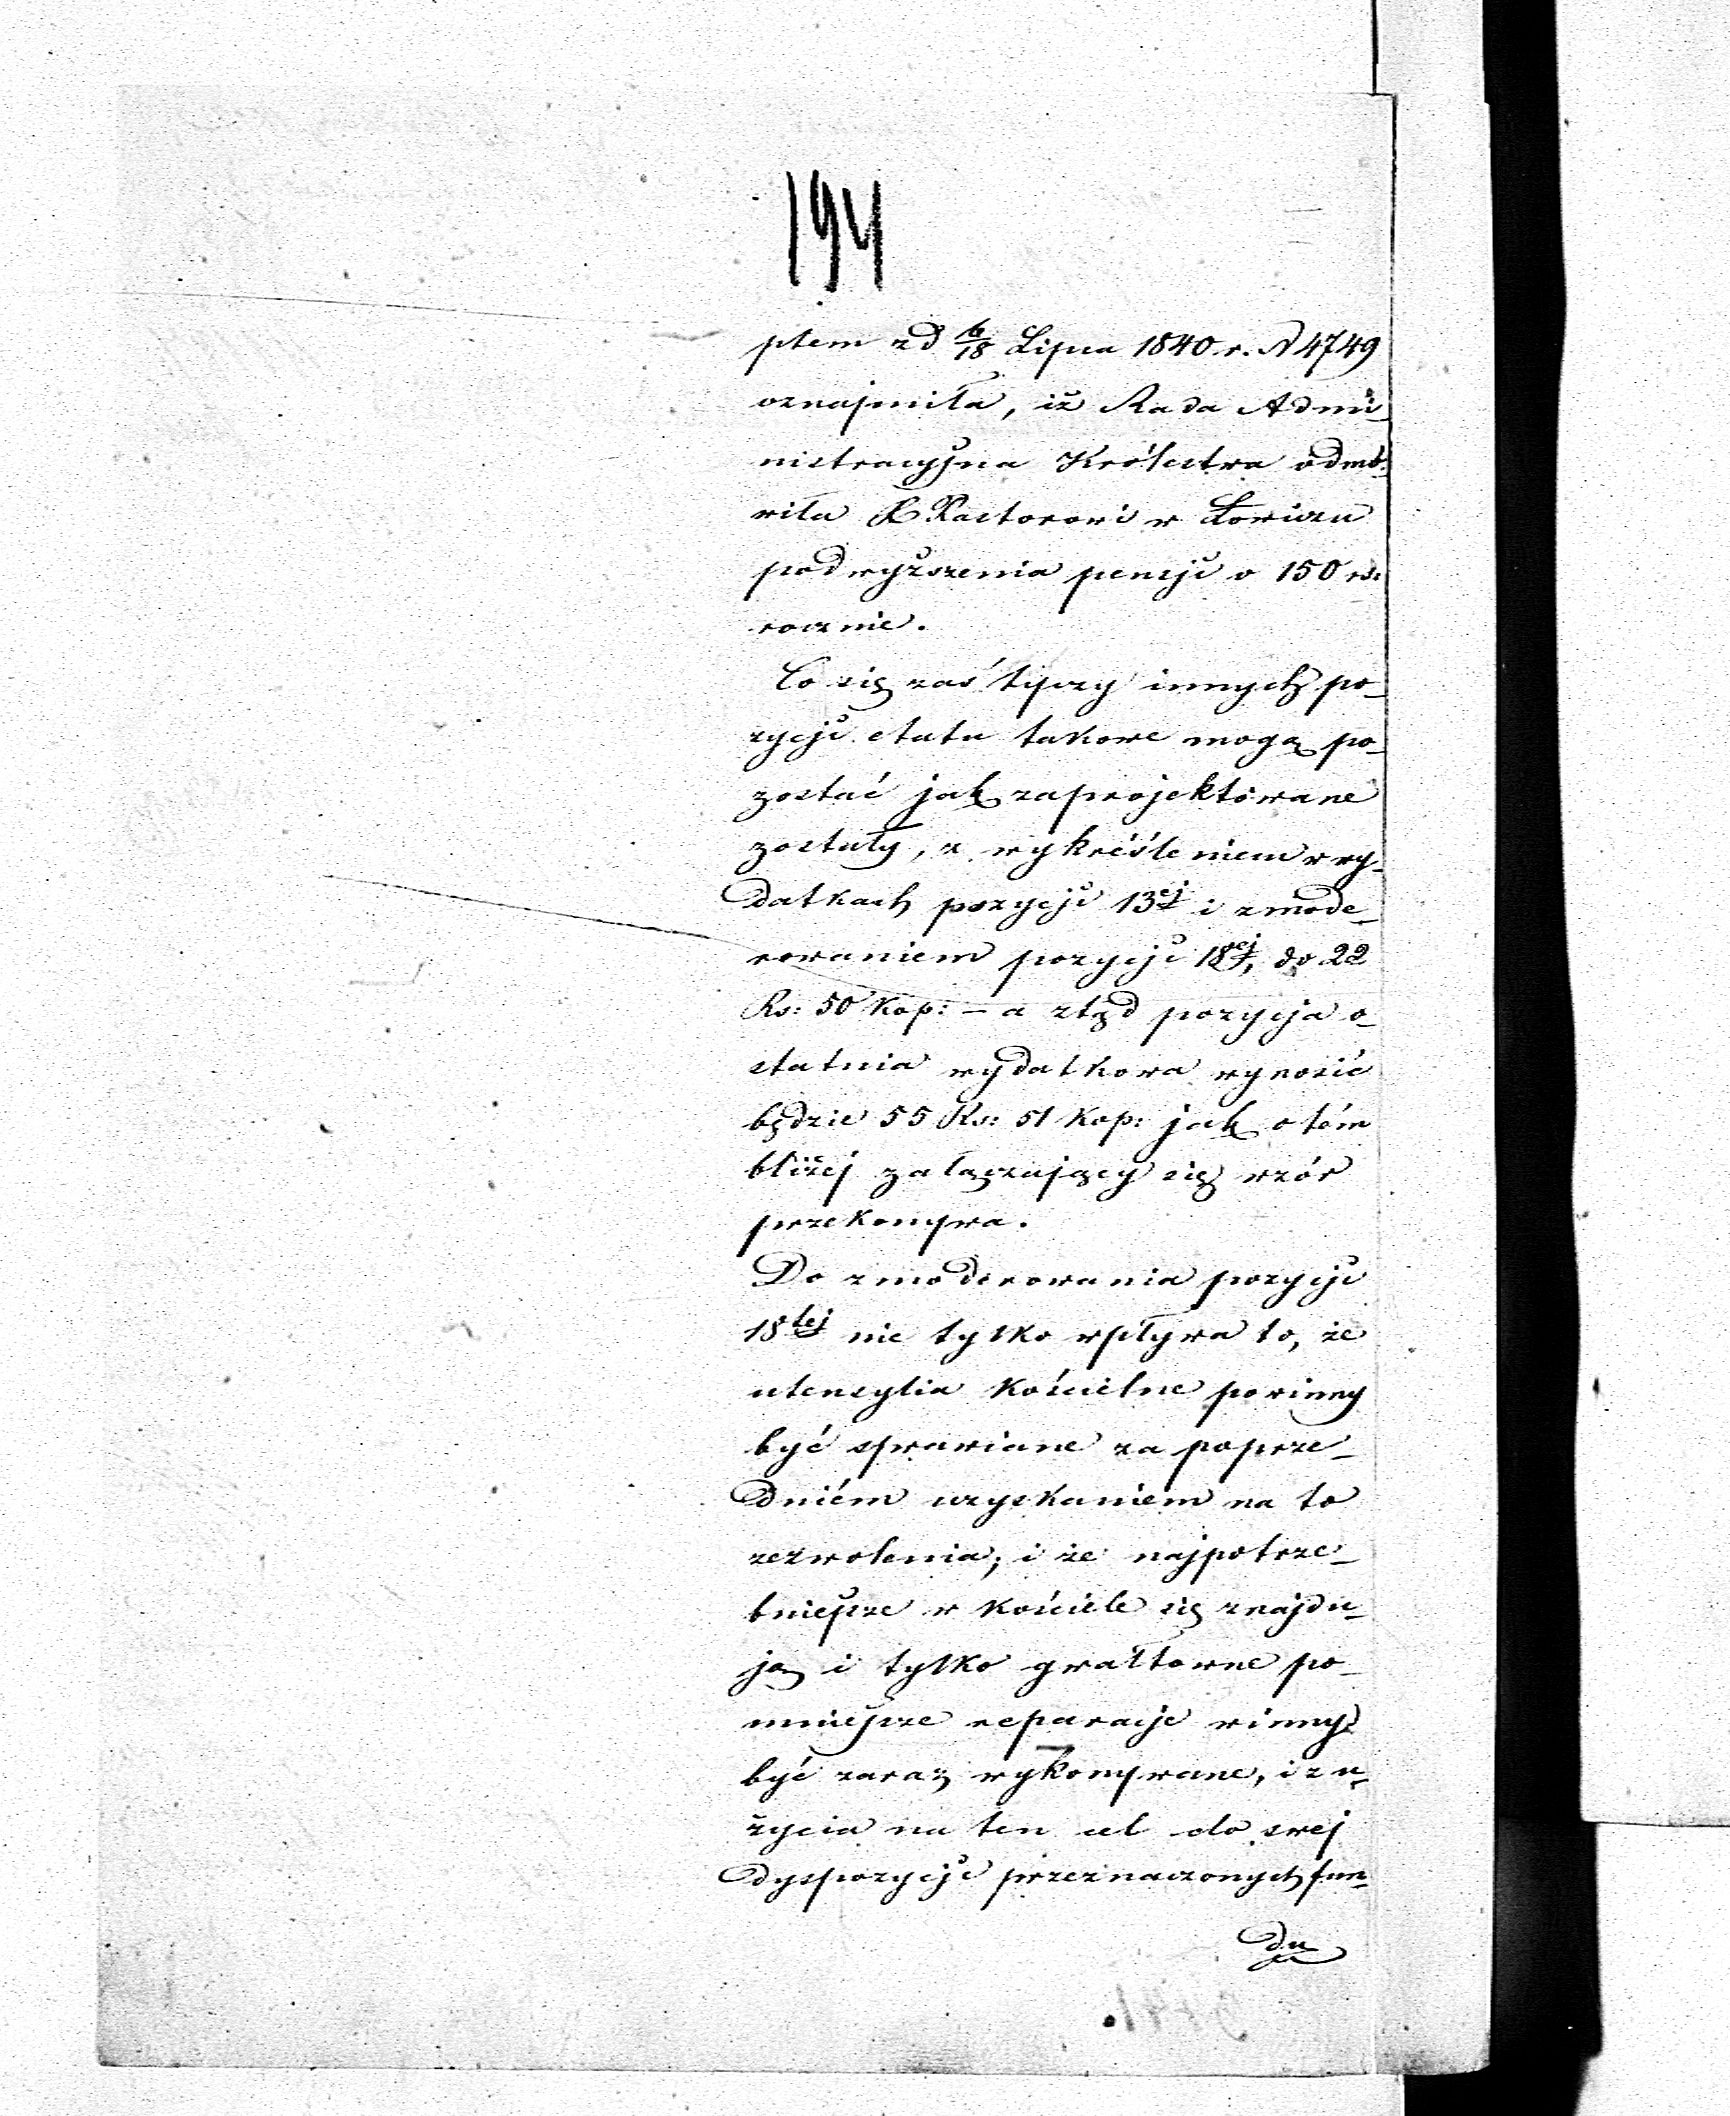 194
ptem z d 6/18 Lipca 1840 r. N 4749
oznajmiła, iż Rada Admi-
nistracyjna Królestwa odmó-
wiła X. Pastorowi w Łowiczu
podwyższenia pensji o 150 rs:
rocznie.
Co się zaś tyczy innych po-
zycji etatu takowe mogą po-
zostać jak zaprojektowane
zostały, z wykréśleniem w wy-
datkach pozycji 13ej i zmode-
rowaniem pozycji 18ej, do 22
Rs: 50 Kop: – a ztąd pozycja o-
statnia wydatkowa wynosić
będzie 55 Rs: 51 Kop: jak o tém
bliżej załączający się wzór
przekonywa.
Do zmoderowania pozycji
18tej nie tylko wpływa to, że
utensylia kościelne powinny
być sprawiane za poprze-
dniém uzyskaniem na to
zezwolenia; i że najpotrze-
bniejsze w kościele się znajdu-
ją i tylko gwałtowne po-
mniejsze reparacje winny
być zaraz wykonywane, i z u-
życia na ten cel do swej
dyspozycji przeznaczonych fun-
du